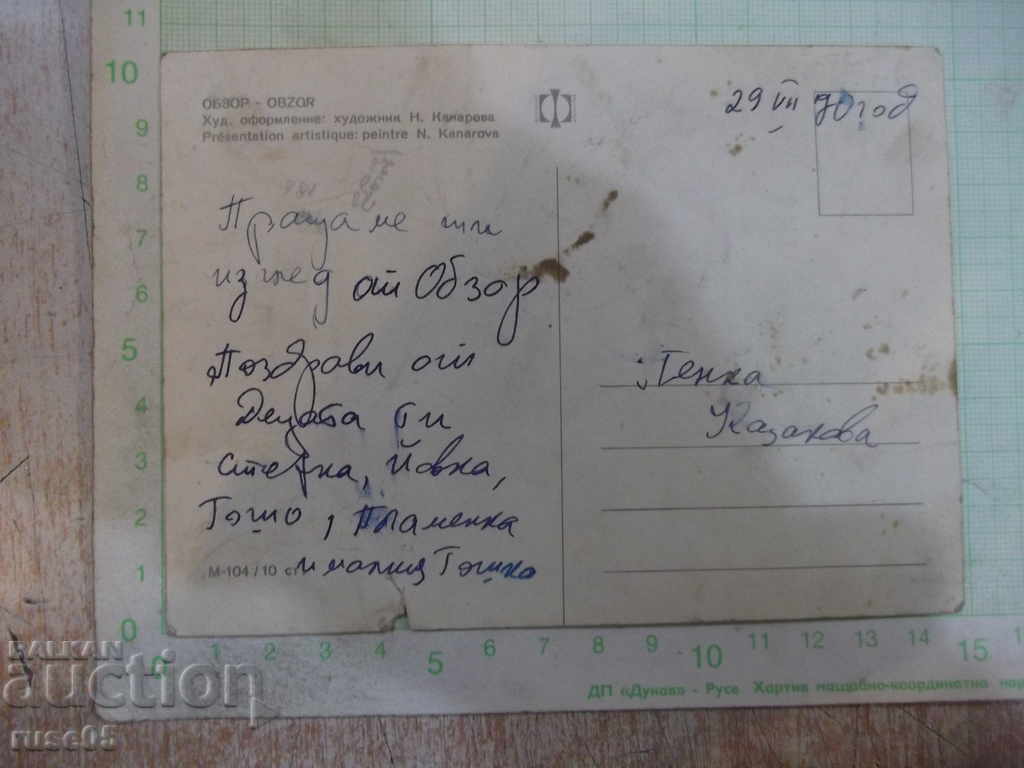 ОБЗОР - OBZOR
Худ. оформление: художник Н. Канарова
Présentation artistique: peintre N. Kanarova
29 VII 70 год
Пращаме ти
изглед от Обзор
Поздрави от
Децата ти
Стефка, Йовка,
Гошо, Пламенка
и малкия Гошко
М-104/10 ст
Генка
Казакова
11
10
9
8
7
6
5
4
3
2
1
0
0 1 2 3 4 5 6 7 8 9 10 11 12 13 14 15
ДП «Дунав» - Русе Хартия мащабно-координатна
BALKAN
auction
ruse05